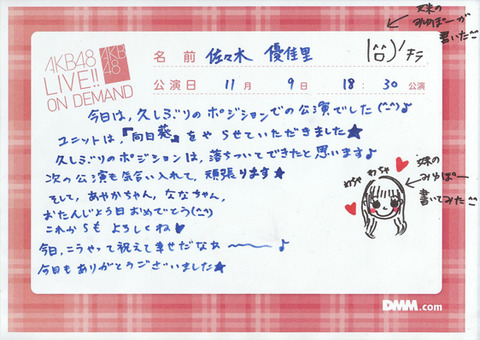 妹の
みゆぽーが
書いた
AKB48
LIVE!!
ON DEMAND
AKB
48
名前 佐々木 優佳里
キラ
公演日 11月 9日 18:30公演
今日は,久しぶりのポジションでの公演でした(^-^)♪
ユニットは,『向日葵』をやらせていただきました★
久しぶりのポジションは,落ちついてできたと思います♪
次の公演も気合い入れて,頑張ります★
そして,あやかちゃん,ななちゃん,
おたんじょう日おめでとう(^-^)
これからもよろしくね♥
今日,こうやって祝えて幸せだなぁ〜〜〜♪
今日もありがとうございました★
わちゃ
わちゃ
妹の
みゆぽー
書いてみた
DMM.com